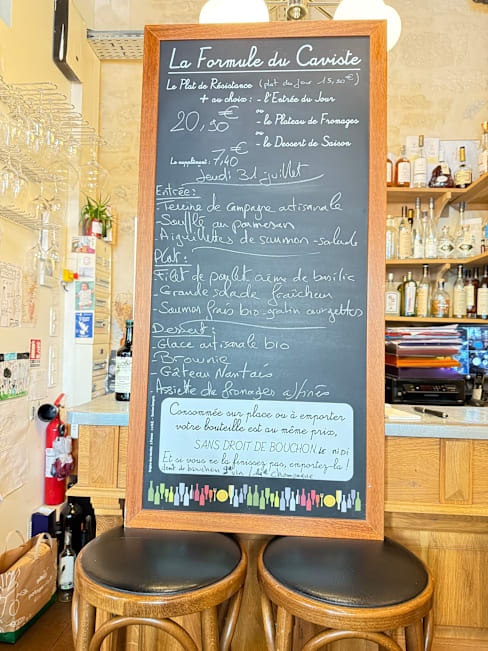 La Formule du Caviste
Le Plat de Résistance (plat du jour 15,50€)
+ au choix : - l'Entrée du Jour
ou
20,50€ - le Plateau de Fromages
ou
- le Dessert de Saison
Le supplément : 7,40€
Jeudi 31 juillet
Entrée :
- Terrine de campagne artisanale
- Soufflé au parmesan
- Aiguillettes de saumon - salade
Plat :
- Filet de poulet crème de basilic
- Grande salade fraîcheur
- Saumon frais bio - gratin courgettes
Dessert :
- Glace artisanale bio
- Brownie
- Gâteau Nantais
- Assiette de fromages affinés
Consommée sur place ou à emporter
votre bouteille est au même prix,
SANS DROIT DE BOUCHON le midi
Et si vous ne la finissez pas, emportez-la !
droit de bouchon 9€ vin / Champagne